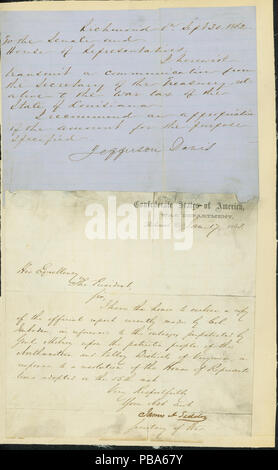 Richmond Va Sept 30. 1862
To the Senate and
House of Representatives
I herewith
transmit a communication from
the Secretary of the Treasury, rel-
ative to the War tax of the
State of Louisiana
I recommend an appropriation
of the amount for the purpose
specified.
Jefferson Davis
Confederate States of America,
WAR DEPARTMENT,
His Excellency
The President,
Sir,
I have the honor to enclose a copy
of the official report recently made by Col
Imboden in reference to the outrages perpetrated by
Genl. Milroy upon the peaceful people of the
Northwestern and Valley Districts of Virginia in
response to a resolution of the House of Representa
tives adopted on the 15th inst
Very Respectfully
Your Obt Servt
James A Seddon
Secretary of War
alamy
Image ID: PBA67Y
www.alamy.com